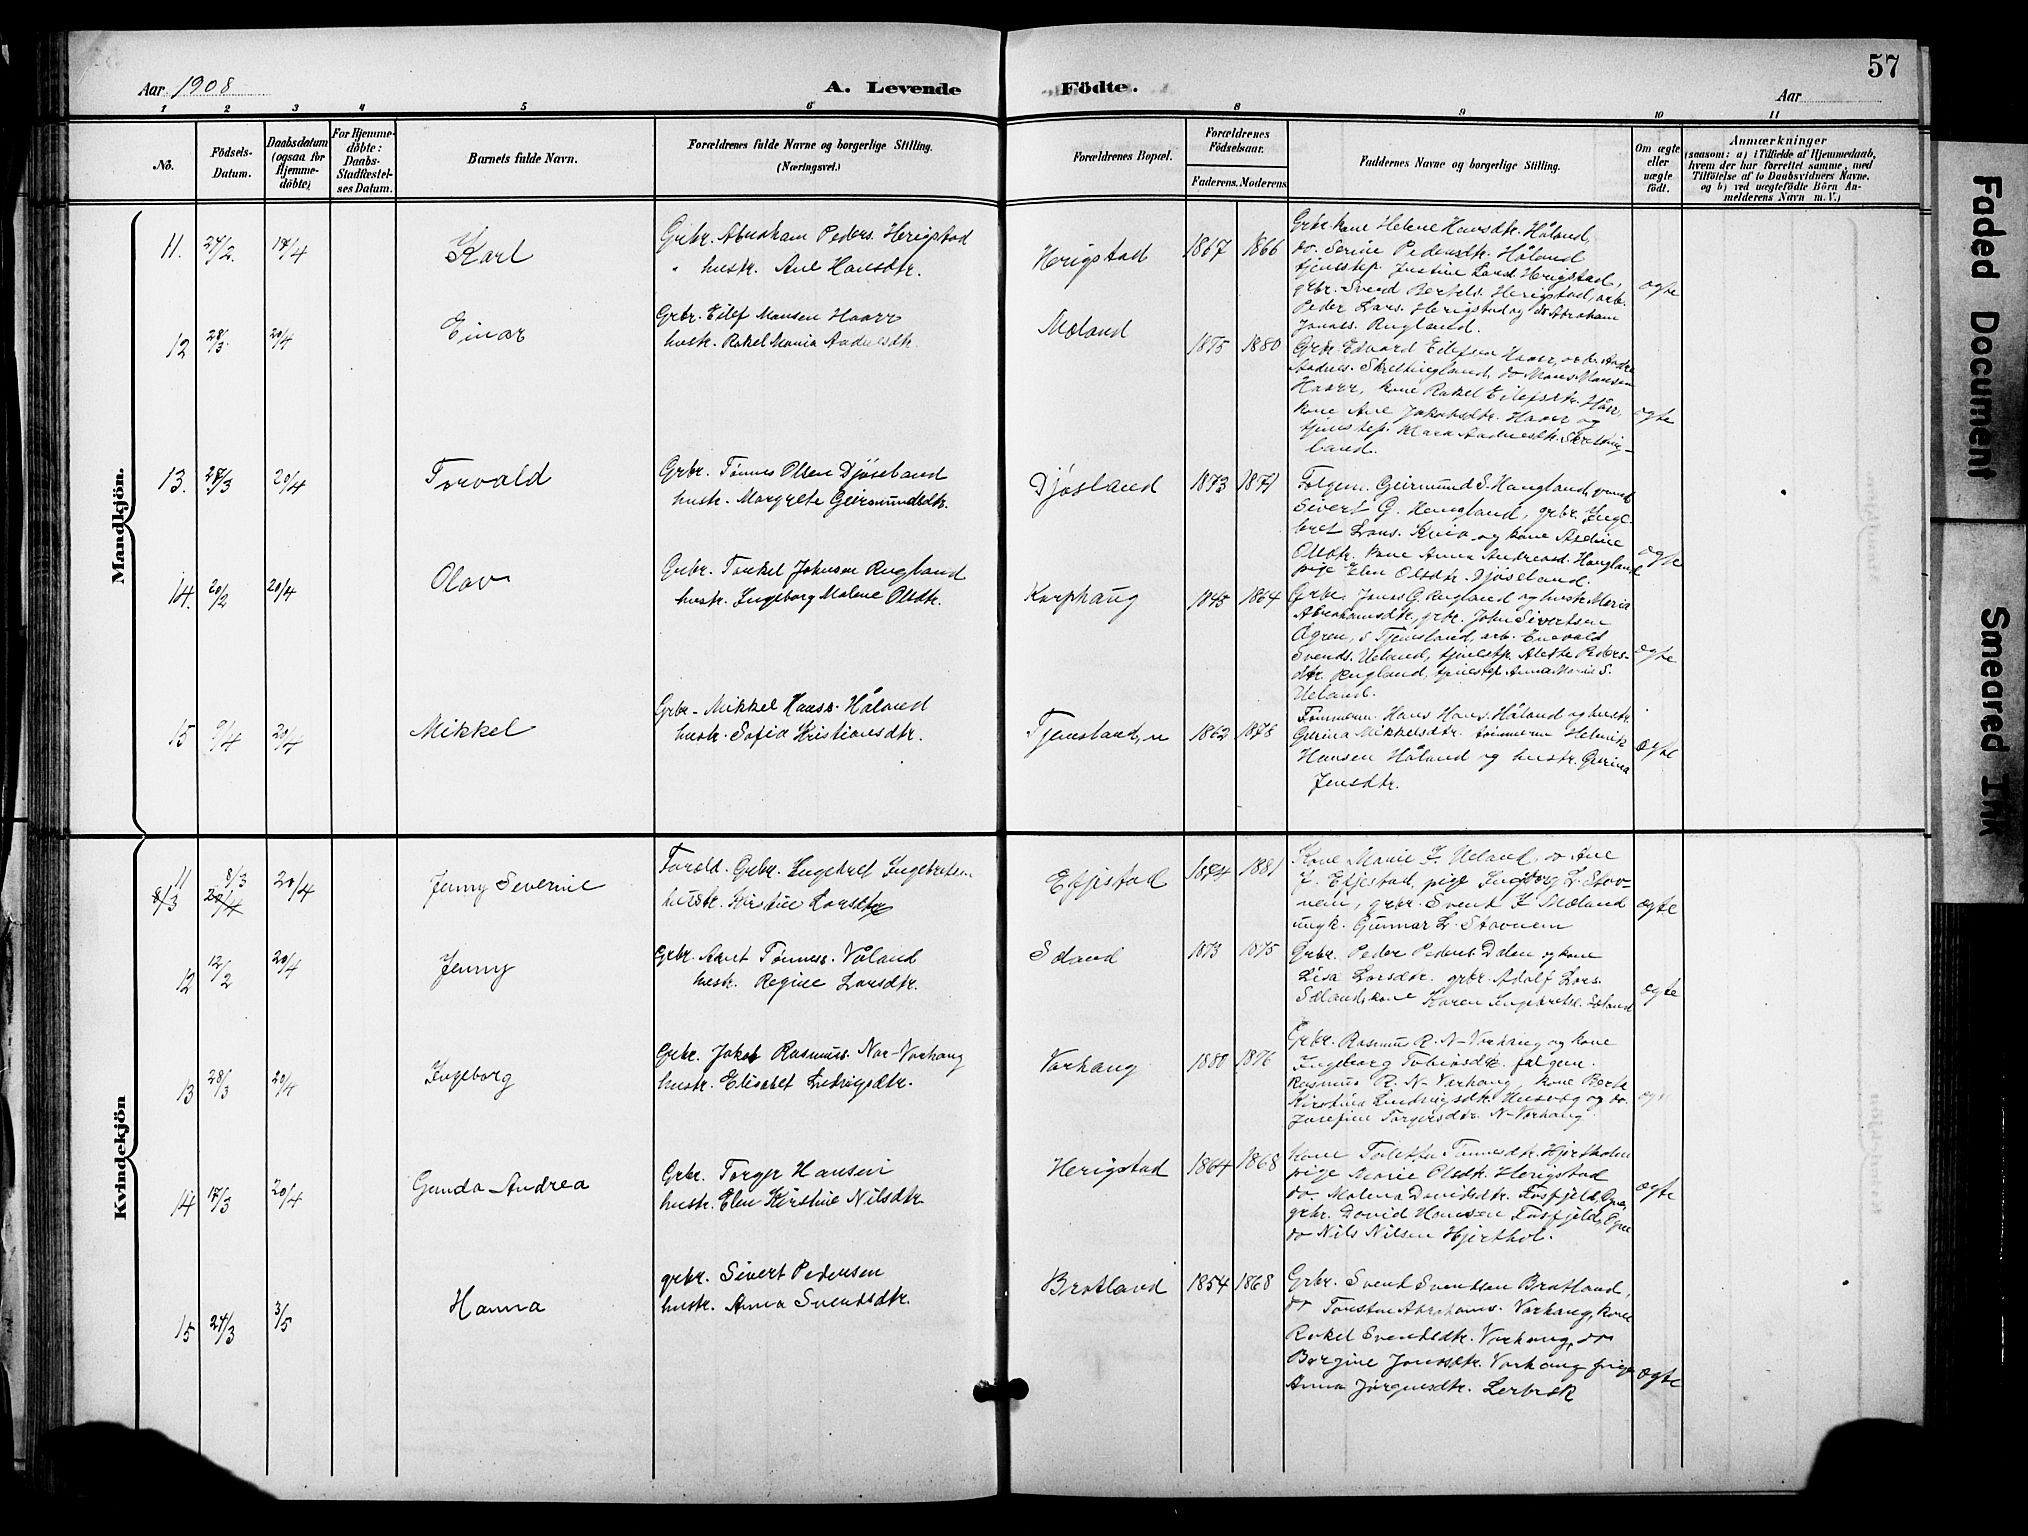 57
Aar 1908
A. Levende
Födte.
Aar
1 2 3 4 5 6 8 9 10 11
No.
Födsels-Datum.
Daabsdatum (ogsaa for Hjemmedöbte)
For Hjemmedöbte: Daabs-Stadfæstelses Datum.
Barnets fulde Navn.
Forældrenes fulde Navne og borgerlige Stilling. (Næringsvei.)
Forældrenes Bopæl.
Forældrenes Födselsaar.
Faderens. Moderens.
Faddernes Navne og borgerlige Stilling.
Om ægte eller uægte födt.
Anmærkninger
(saasom: a) i Tilfælde af Hjemmedaab, hvem der har forrettet samme, med Tilföielse af to Daabsvidners Navne, og b) ved uægtefödte Börn Anmelderens Navn m. V.)
Mandkjön.
11. 27/2. 17/4 Karl
Grbr. Abraham Peders. Herigstad
" hustr. Ane Hansdtr.
Herigstad 1867 1866
Grbr kone Helene Hansdtr. Håland,
do. Serine Pedersdtr. Håland
tjenestep. Justine Lard. Herigstad,
grbr. Svend Bertels. Herigstad, arb.
Peder Lars. Herigstad og do Abraham
Jonas. Rugland.
ægte
12 28/3. 20/4 Einar
Grbr. Eilef Monsen Haarr
hustr. Rakel Maria Andresdtr.
Mæland 1875 1880
Grbr. Edvard Eilefsen Haarr, arb. Andre
Andres. Skretlingland, do Mons Monsen
Haarr, kone Rakel Eilefsdtr. Hårr,
kone Ane Jakobsdtr. Haarr og
tjenestep. Klara Andresdtr. Skretling-
land.
ægte
13. 28/3 20/4 Torvald
Grbr. Tønnes Olsen Djøseland
hustr. Margrete Geirmundsdtr.
Djøsland 1873 1871
Folgem. Geirmund S. Haugland,
Sivert G. Haugland, grbr. Inge-
bret Lars. Kvia og kone Asline
Olsdtr. kone Anna Andreasd. Haugland
pige Elen Olsdtr. Djøseland.
ægte
14. 20/2 20/4 Olav
Grbr. Torkel Johnsen Rugland
hustr. Ingeborg Malene Olsdtr.
Karphaug 1845 1864
Grbr. Jonas G. Rugland og hustr. Maria
Abrahamsdtr, grbr. John Sivertsen
Ogren, s Tjemsland, arb. Enevald
Svends. Ueland, tjenestp. Alette Peders-
dtr. Rugland, tjenestep Anna Maria S.
Ueland.
ægte
15 9/4 20/4 Mikkel
Grbr. Mikkel Hanss. Håland
hustr. Sofia Kristiansdtr.
Tjemsland, n 1862 1878
Tømmerm. Hans Hans. Håland og hustr.
Gurina Mikkelsdtr. tømmerm Helmik
Hansen Håland og hustr. Gurina
Jensdtr.
ægte
Kvindekjön
11 8/3 20/4 Jenny Severine
8/3 20/4
Forold. Grbr. Ingebret Ingebretsen
hustr. Kirstine Larsdtr
Efjestad 1874 1881
Kone Marie I. Ueland, do Ane
I. Efjestad, pige Ingeborg L. Stov-
nem, grbr. Svend I Mæland
ungk. Gunnar L. Stavnem
ægte
12 12/2 20/4 Jenny
Grbr. Aant Tønness. Våland
hustr. Regine Larsdtr.
Sæland 1873 1875
Grbr. Peder Peders. Dalen og kone
Lisa Larsdtr. grbr. Adolf Lars.
Sæland, kone Karen Ingebretsd. Sæland
ægte
13 28/3 20/4 Ingeborg
Grbr. Jakob Rasmuss. Nor-Varhaug
hustr. Elisabet Ludvigsdtr.
Varhaug 1880 1876
Grbr. Rasmus R. N-Varhaug og kone
Ingeborg Tobiasdtr. følgem.
Rasmus R. N-Varhaug, kone Berte
Kirstina Ludvigsdtr. Husvæg og do.
Josefine Torgersdtr. N-Varhaug.
ægte
14 17/3 20/4 Gunda Andrea
Grbr. Torger Hansen
hustr. Elen Kirstine Nilsdtr.
Herigstad 1864 1868
kone Tolette Tønnesdtr. Hjerthelen
pige Marie Olsdtr. Herigstad
do Malena Davidsdtr. Fosfjeld, Ogna,
grbr. David Hansen Fosfjeld, Ogna
do Nils Nilsen Hjerthol.
ægte
15 24/3 3/5 Hanna
grbr. Sivert Pedersen
hustr. Anna Svendsdtr.
Bratland 1854 1868
Grbr. Svend Svendsen Bratland,
do Torsten Abrahams. Varhaug, kone
Rakel Svendsdtr. Varhaug, do
Bergine Jonasdtr. Varhaug, pige
Anna Jørgensdtr. Lerbræk
ægte
Faded Document
Smeared Ink